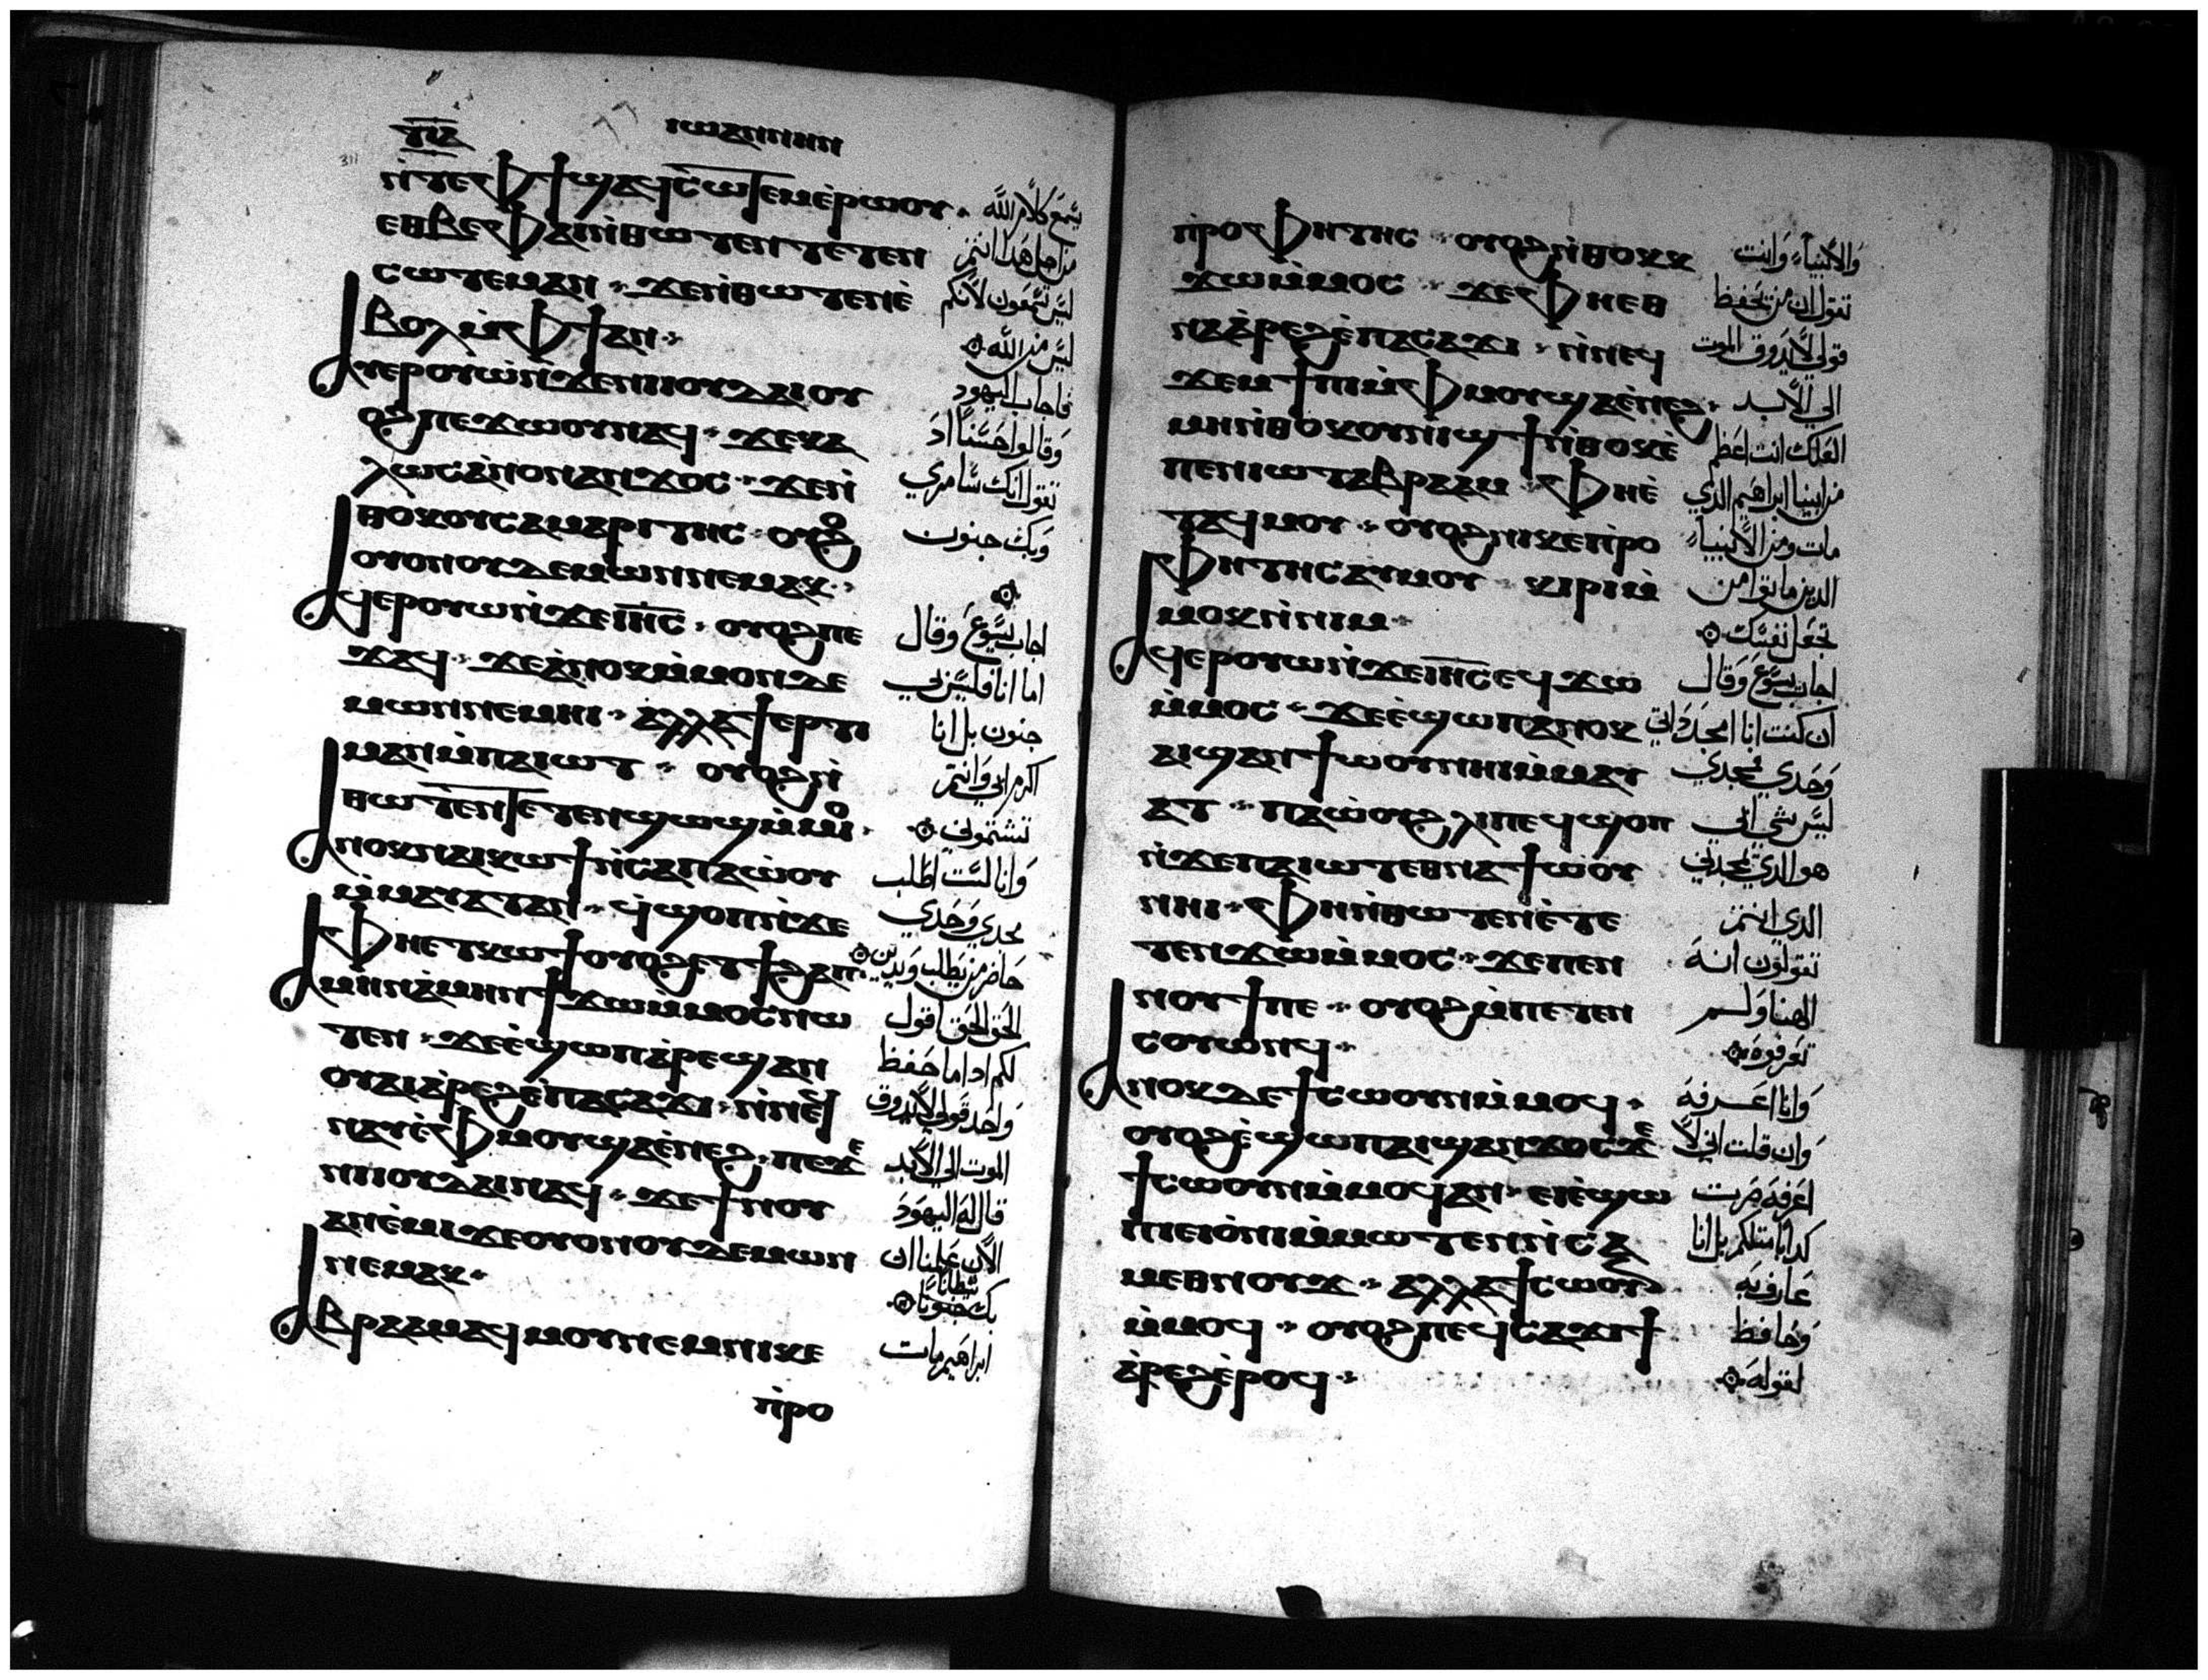 ⲓⲱⲁⲛⲛⲏⲛ
311
ⲛ̀ⲧⲉⲫϯϣⲁϥⲥⲱⲧⲉⲙⲉ̀ⲣⲱⲟⲩ يسمع كلام الله
ⲉⲑⲃⲉⲫⲁⲓⲛ̀ⲑⲱⲧⲉⲛⲧⲉⲧⲉⲛ من اجل هذا انتم
ⲥⲱⲧⲉⲙⲁⲛ ϫⲉⲛ̀ⲑⲱⲧⲉⲛⲉ̀ ليس تسمعون لانكم
ⲃⲟⲗⲙ̀ⲫϯⲁⲛ ليس من الله
ⲁⲩⲉⲣⲟⲩⲱ̀ⲛ̀ϫⲉⲛⲓⲓⲟⲩⲇⲁⲓⲟⲩ فاجاب اليهود
ⲟϩⲡⲉϫⲱⲟⲩⲛⲁϥ ϫⲉⲕⲁ وقالوا حسناً اذ
ⲗⲱⲥⲁ̀ⲛⲟⲛⲁⲛϫⲟⲥ ϫⲉⲛ̀ نقول انك سامري
ⲑⲟⲕⲟⲩⲥⲁⲙⲁⲣⲓⲧⲏⲥ ⲟⲩⲟϩ وبك جنون
ⲟⲩⲟⲛⲟⲩⲇⲉⲙⲱⲛⲛⲉⲙⲁⲕ
ⲁϥⲉⲣⲟⲩⲱⲛ̀ϫⲉⲓⲏⲥ ⲟⲩⲟϩⲡⲉ اجاب يسوع وقال
ϫⲁϥ ϫⲉⲁ̀ⲛⲟⲕⲙ̀ⲙⲟⲛⲇⲉ اما انا فليس بي
ⲙⲱⲛⲛⲉⲙⲏⲓ ⲁⲗⲗⲁϯⲉⲣⲧⲓ جنون بل انا
ⲙⲁⲛⲙ̀ⲡⲁⲓⲱⲧ ⲟⲩⲟϩⲛ̀ اكرم ابي وانتم
ⲑⲱⲧⲉⲛⲧⲉⲧⲉⲛϣⲱϣⲙ̀ⲙⲟⲓ تشتموني
ⲁⲛⲟⲕⲛⲁⲓⲕⲱϯⲛ̀ⲥⲁⲡⲁⲱ̀ⲟⲩ وانا لست اطلب
ⲙ̀ⲙⲁⲩⲁⲧⲁⲛ ϥ̀ϣⲟⲡⲛ̀ϫⲉ مجدي وحدي
ⲫⲏⲉⲧⲕⲱϯⲟⲩⲟϩⲉⲧϯϩⲁⲡ حاضر من يطلب ويدين
ⲁⲙⲏⲛⲁ̀ⲙⲏⲛϯϫⲱⲙ̀ⲙⲟⲥⲛⲱ الحق الحق اقول
ⲧⲉⲛ ϫⲉⲉ̀ϣⲱⲡⲁ̀ⲣⲉϣⲁⲛ لكم اذا ما حفظ
ⲟⲩⲁⲓⲁ̀ⲣⲉϩⲉ̀ⲡⲁⲥⲁϫⲓ ⲛ̀ⲛⲉϥ واحد قولي لا يذوق
ⲛⲁⲩⲉ̀ⲫⲙⲟⲩϣⲁⲉ̀ⲛⲉϩ ⲡⲉϫⲉ الموت الي الابد
ⲛⲓⲓⲟⲩⲇⲁⲓⲛⲁϥ ϫⲉϯⲛⲟⲩ قال له اليهود
ⲁⲛⲉ̀ⲙⲓϫⲉⲟⲩⲟⲛⲟⲩⲇⲉⲙⲱⲛ الان علمنا ان
ⲛⲉⲙⲁⲕ بك جنونا شيطانا
ⲁⲃⲣⲁⲁⲙⲁϥⲙⲟⲩⲛⲉⲙⲛⲓⲕⲉ ابراهيم مات
ⲡ̀ⲣⲟ
ⲡ̀ⲣⲟⲫⲏⲧⲏⲥ ⲟⲩⲟϩⲛ̀ⲑⲟⲕⲕ والانبياء وانت
ϫⲱⲙ̀ⲙⲟⲥ ϫⲉⲫⲏⲉⲑ تقول ان من يحفظ
ⲛⲁⲁ̀ⲣⲉϩⲉ̀ⲡⲁⲥⲁϫⲓ ⲛ̀ⲛⲉϥ قولي لا يذوق الموت
ϫⲉⲙϯⲡⲓⲙ̀ⲫⲙⲟⲩϣⲁⲉ̀ⲛⲉϩ الي الابد
ⲙⲏⲛ̀ⲑⲟⲕⲟⲩⲛⲓϣϯⲛ̀ⲑⲟⲕⲉ̀ العلك انت اعظم
ⲡⲉⲛⲓⲱⲧⲁⲃⲣⲁⲁⲙ ⲫⲏⲉ̀ من ابينا ابراهيم الذي
ⲧⲁϥⲙⲟⲩ ⲟⲩⲟϩⲛⲓⲕⲉⲡ̀ⲣⲟ مات ومن الانبياء
ⲫⲏⲧⲏⲥⲁⲩⲙⲟⲩ ⲕⲓⲣⲓⲙ̀ الذين ماتوا من
ⲙⲟⲕⲛ̀ⲛⲓⲙ تجعل نفسك
ⲁϥⲉⲣⲟⲩⲱⲛ̀ϫⲉⲓⲏⲥⲉϥϫⲱ اجاب يسوع وقال
ⲙ̀ⲙⲟⲥ ϫⲉⲉ̀ϣⲱⲡⲁⲛⲟⲕ ان كنت انا امجد ذاتي
ⲁⲓϣⲁⲛϯⲱⲟⲩⲛⲏⲓⲙ̀ⲙⲁⲩ وحدي فمجدي
ⲁⲧ ⲡⲁⲱ̀ⲟⲩϩⲗⲓⲡⲉϥϣⲟⲡ ليس شي ابي
ⲛ̀ϫⲉⲡⲁⲓⲱⲧⲉⲑⲛⲁϯⲱ̀ⲟⲩ هو الذي يمجدني
ⲛⲏⲓ ⲫⲏⲛ̀ⲑⲱⲧⲉⲛⲉ̀ⲧⲉ الذي انتم
ⲧⲉⲛϫⲱⲙ̀ⲙⲟⲥ ϫⲉⲡⲉⲛ تقولون انه
ⲛⲟⲩϯⲡⲉ ⲟⲩⲟϩⲙ̀ⲡⲉⲧⲉⲛ الهنا ولم
ⲥⲟⲩⲱⲛϥ تعرفوه
ⲁⲛⲟⲕⲇⲉϯⲥⲱⲟⲩⲛⲙ̀ⲙⲟϥ وانا اعرفه
ⲟⲩⲟϩⲉ̀ϣⲱⲡⲁⲓϣⲁⲛϫⲟⲥϫⲉ وان قلت اني لا
ϯⲥⲱⲟⲩⲛⲙ̀ⲙⲟϥⲁⲛ ⲉⲓⲉ̀ϣⲱ اعرفه صرت
ⲡⲓⲉⲓⲟ̀ⲛⲓⲙ̀ⲙⲱⲧⲉⲛⲛ̀ⲥⲁ كذابا مثلكم بل انا
ⲙⲉⲑⲛⲟⲩϫ ⲁⲗⲗⲁϯⲥⲱⲟⲩⲛ عارف به
ⲙ̀ⲙⲟϥ ⲟⲩⲟϩⲡⲉϥⲥⲁϫⲓϯ وحافظ
ⲁ̀ⲣⲉϩⲉ̀ⲣⲟϥ لقوله